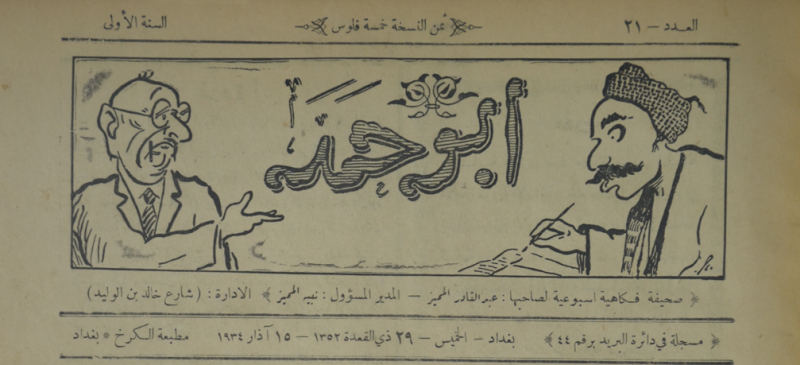 العـدد — ٢١ ثمن النسخة خمسة فلوس السنة الأولى
أبو حمد
صحيفة فكاهية اسبوعية لصاحبها : عبدالقادر المميز — المدير المسؤول : نبيه المميز ﴾ الادارة : (شارع خالد بن الوليد) ﴾
﴿ مسجلة في دائرة البريد برقم ٤٤ ﴾ بغداد — الخميس — ٢٩ ذي القعدة ١٣٥٢ — ١٥ آذار ١٩٣٤ مطبعة الكرخ * بغداد ﴾